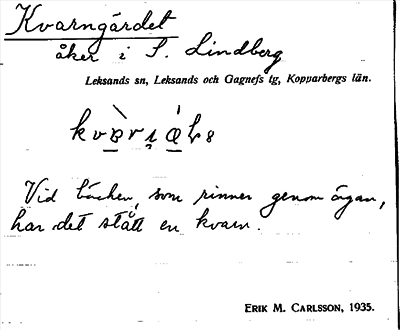 Kvarngärdet
åker i S. Lindberg
Leksands sn, Leksands och Gagnefs tg, Kopparbergs län.
Vid bäcken, som rinner genom ägan,
har det stått en kvarn.
ERIK M. CARLSSON, 1935.